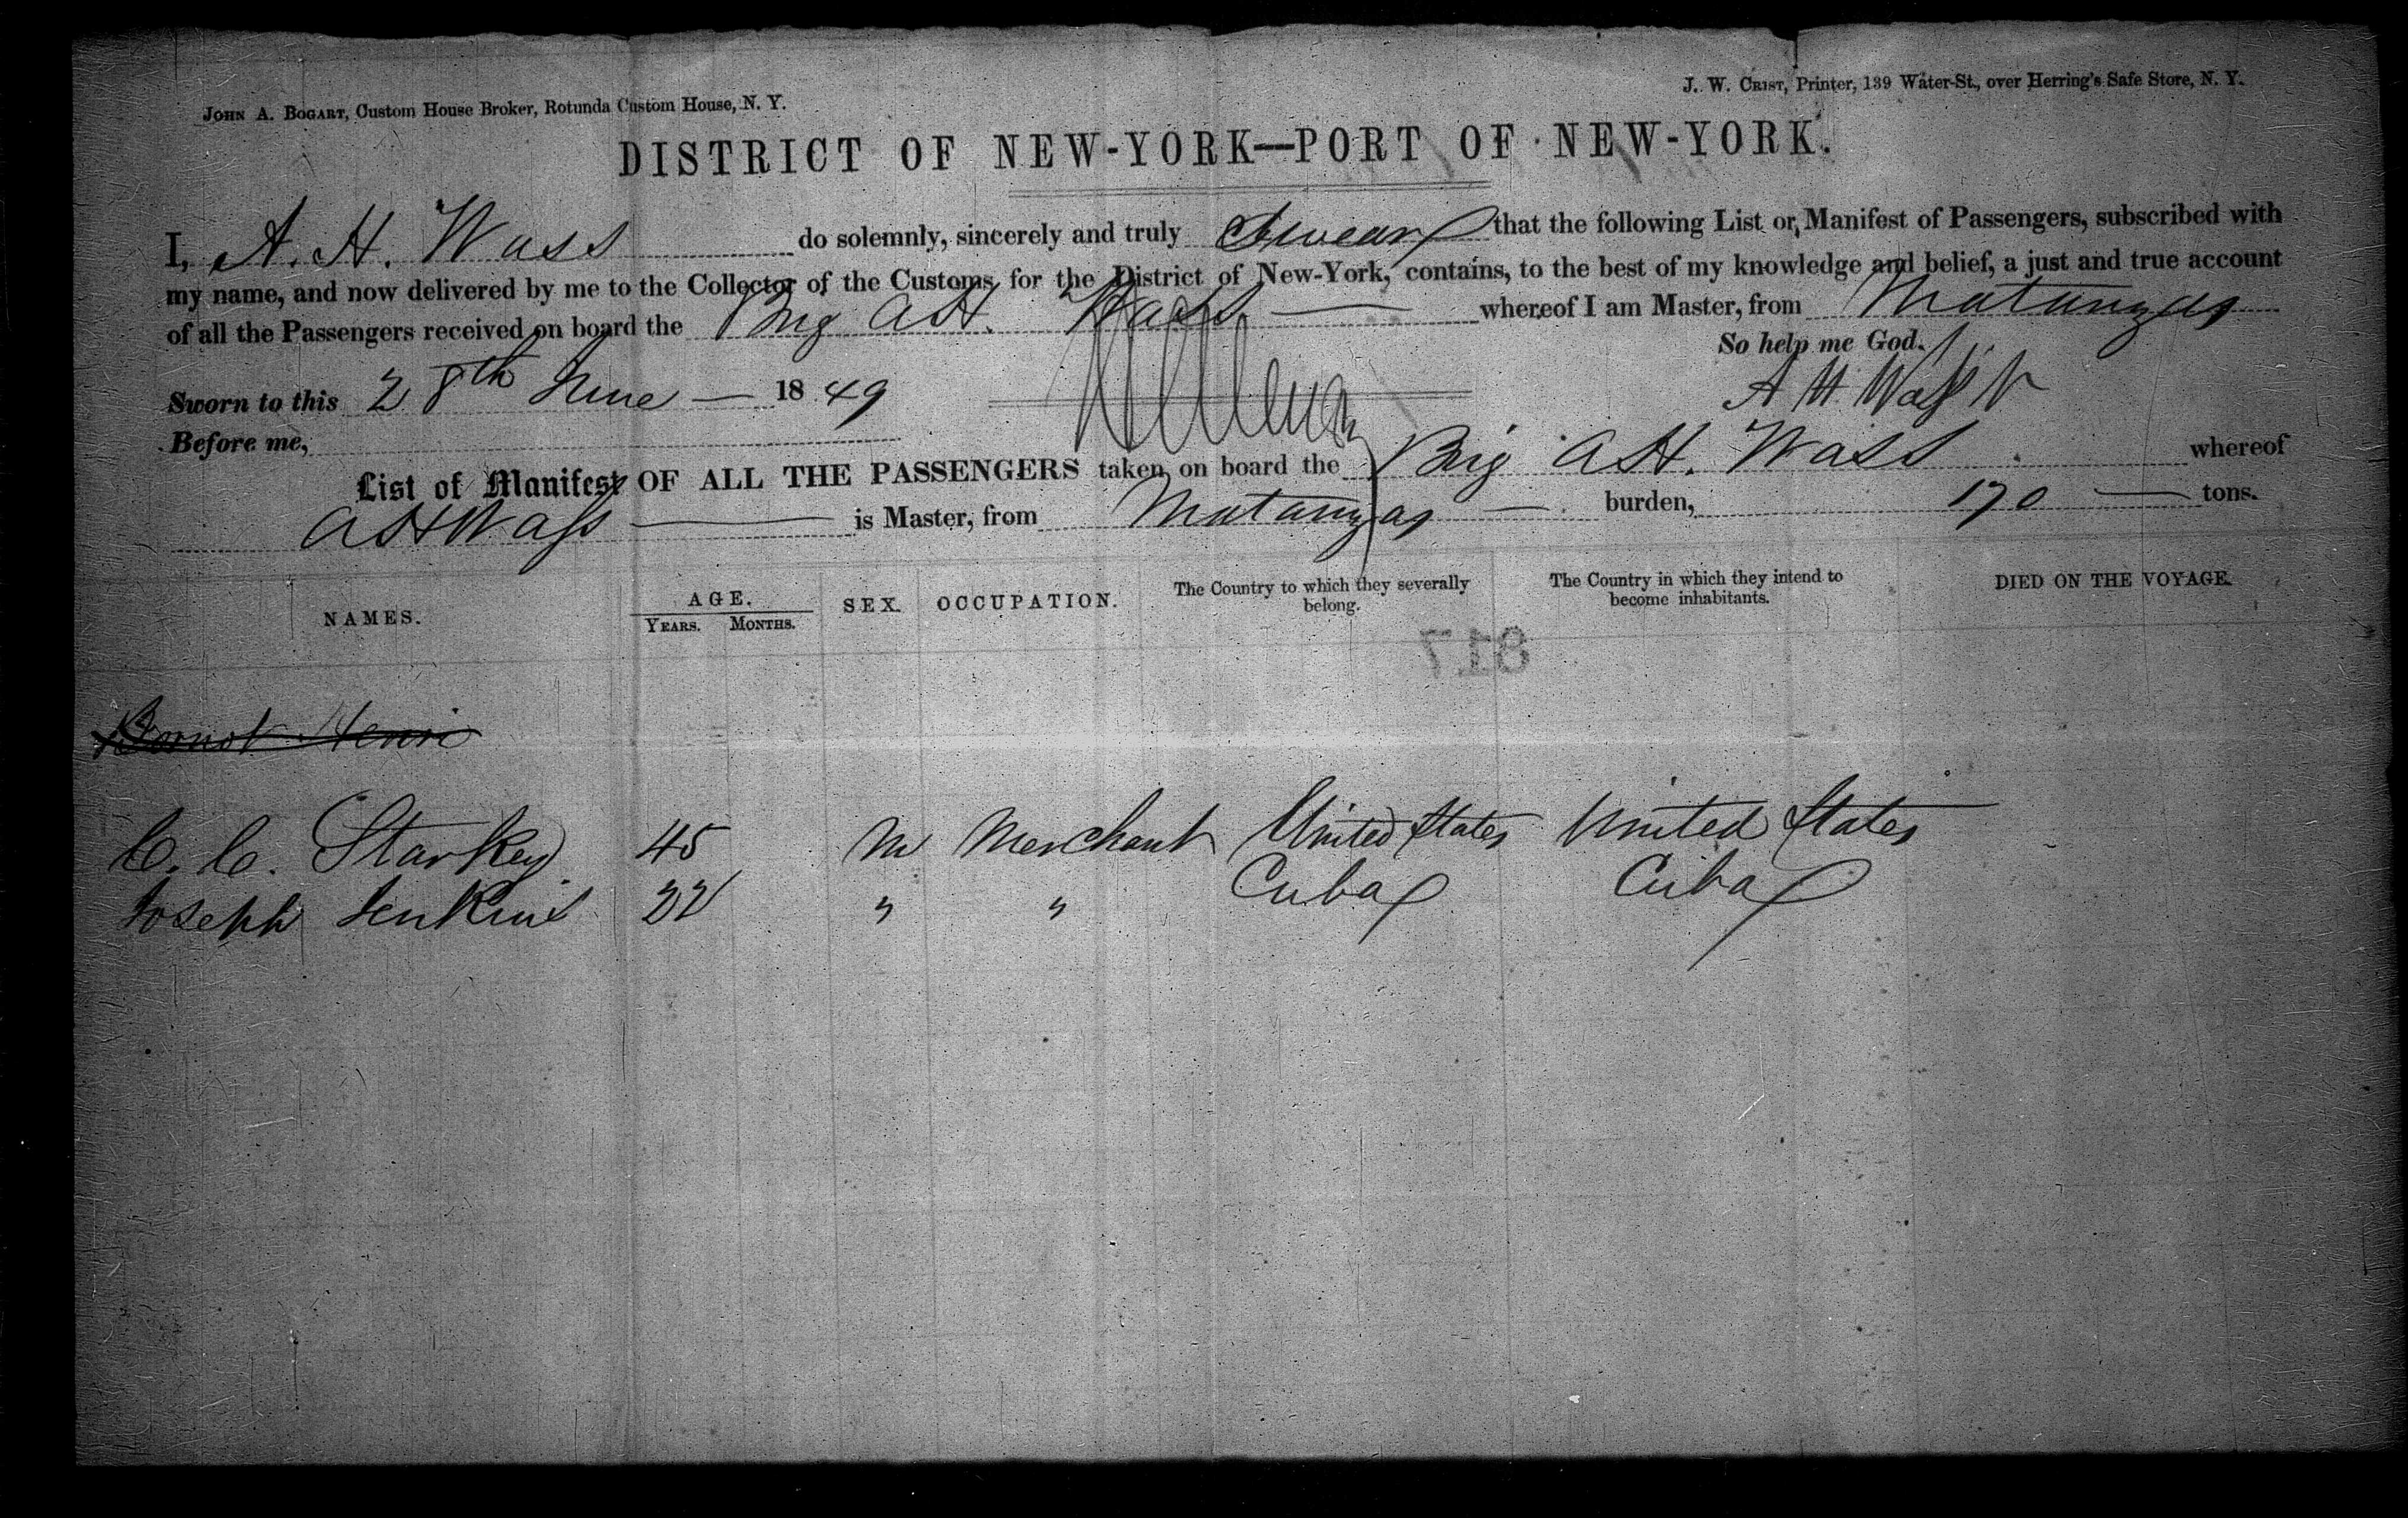 JOHN A. BOGART, Custom House Broker, Rotunda Custom House, N. Y.
J. W. CRIST, Printer, 139 Water-St., over Herring's Safe Store, N. Y.
DISTRICT OF NEW-YORK—PORT OF NEW-YORK.
I, A. H. Wass do solemnly, sincerely and truly Swear that the following List or Manifest of Passengers, subscribed with
my name, and now delivered by me to the Collector of the Customs for the District of New-York, contains, to the best of my knowledge and belief, a just and true account
of all the Passengers received on board the Brig A H. Wass whereof I am Master, from Matanzas
So help me God.
Sworn to this 28th June 1849
A H Wass
Before me,
List of Manifest OF ALL THE PASSENGERS taken on board the Brig A H. Wass whereof
A H Wass is Master, from Matanzas burden, 170 tons.
NAMES. AGE. SEX. OCCUPATION. The Country to which they severally belong. The Country in which they intend to become inhabitants. DIED ON THE VOYAGE.
YEARS. MONTHS.
817
Henri
C. C. Starkey 45 M Merchant United States United States
Joseph Jenkins 22 " " Cuba Cuba